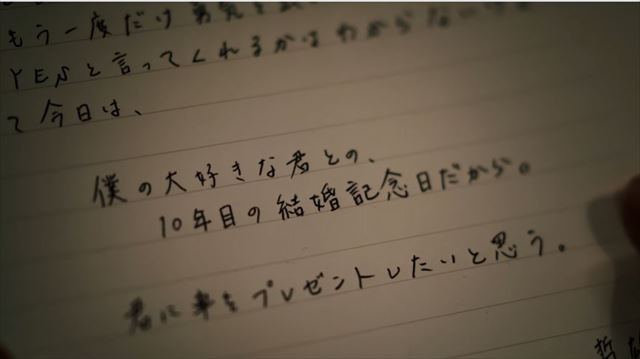 もう一度だけ勇気を
YESと言ってくれるかはわからない
て今日は、
僕の大好きな君との、
10年目の結婚記念日だから。
君に車をプレゼントしたいと思う。
哲